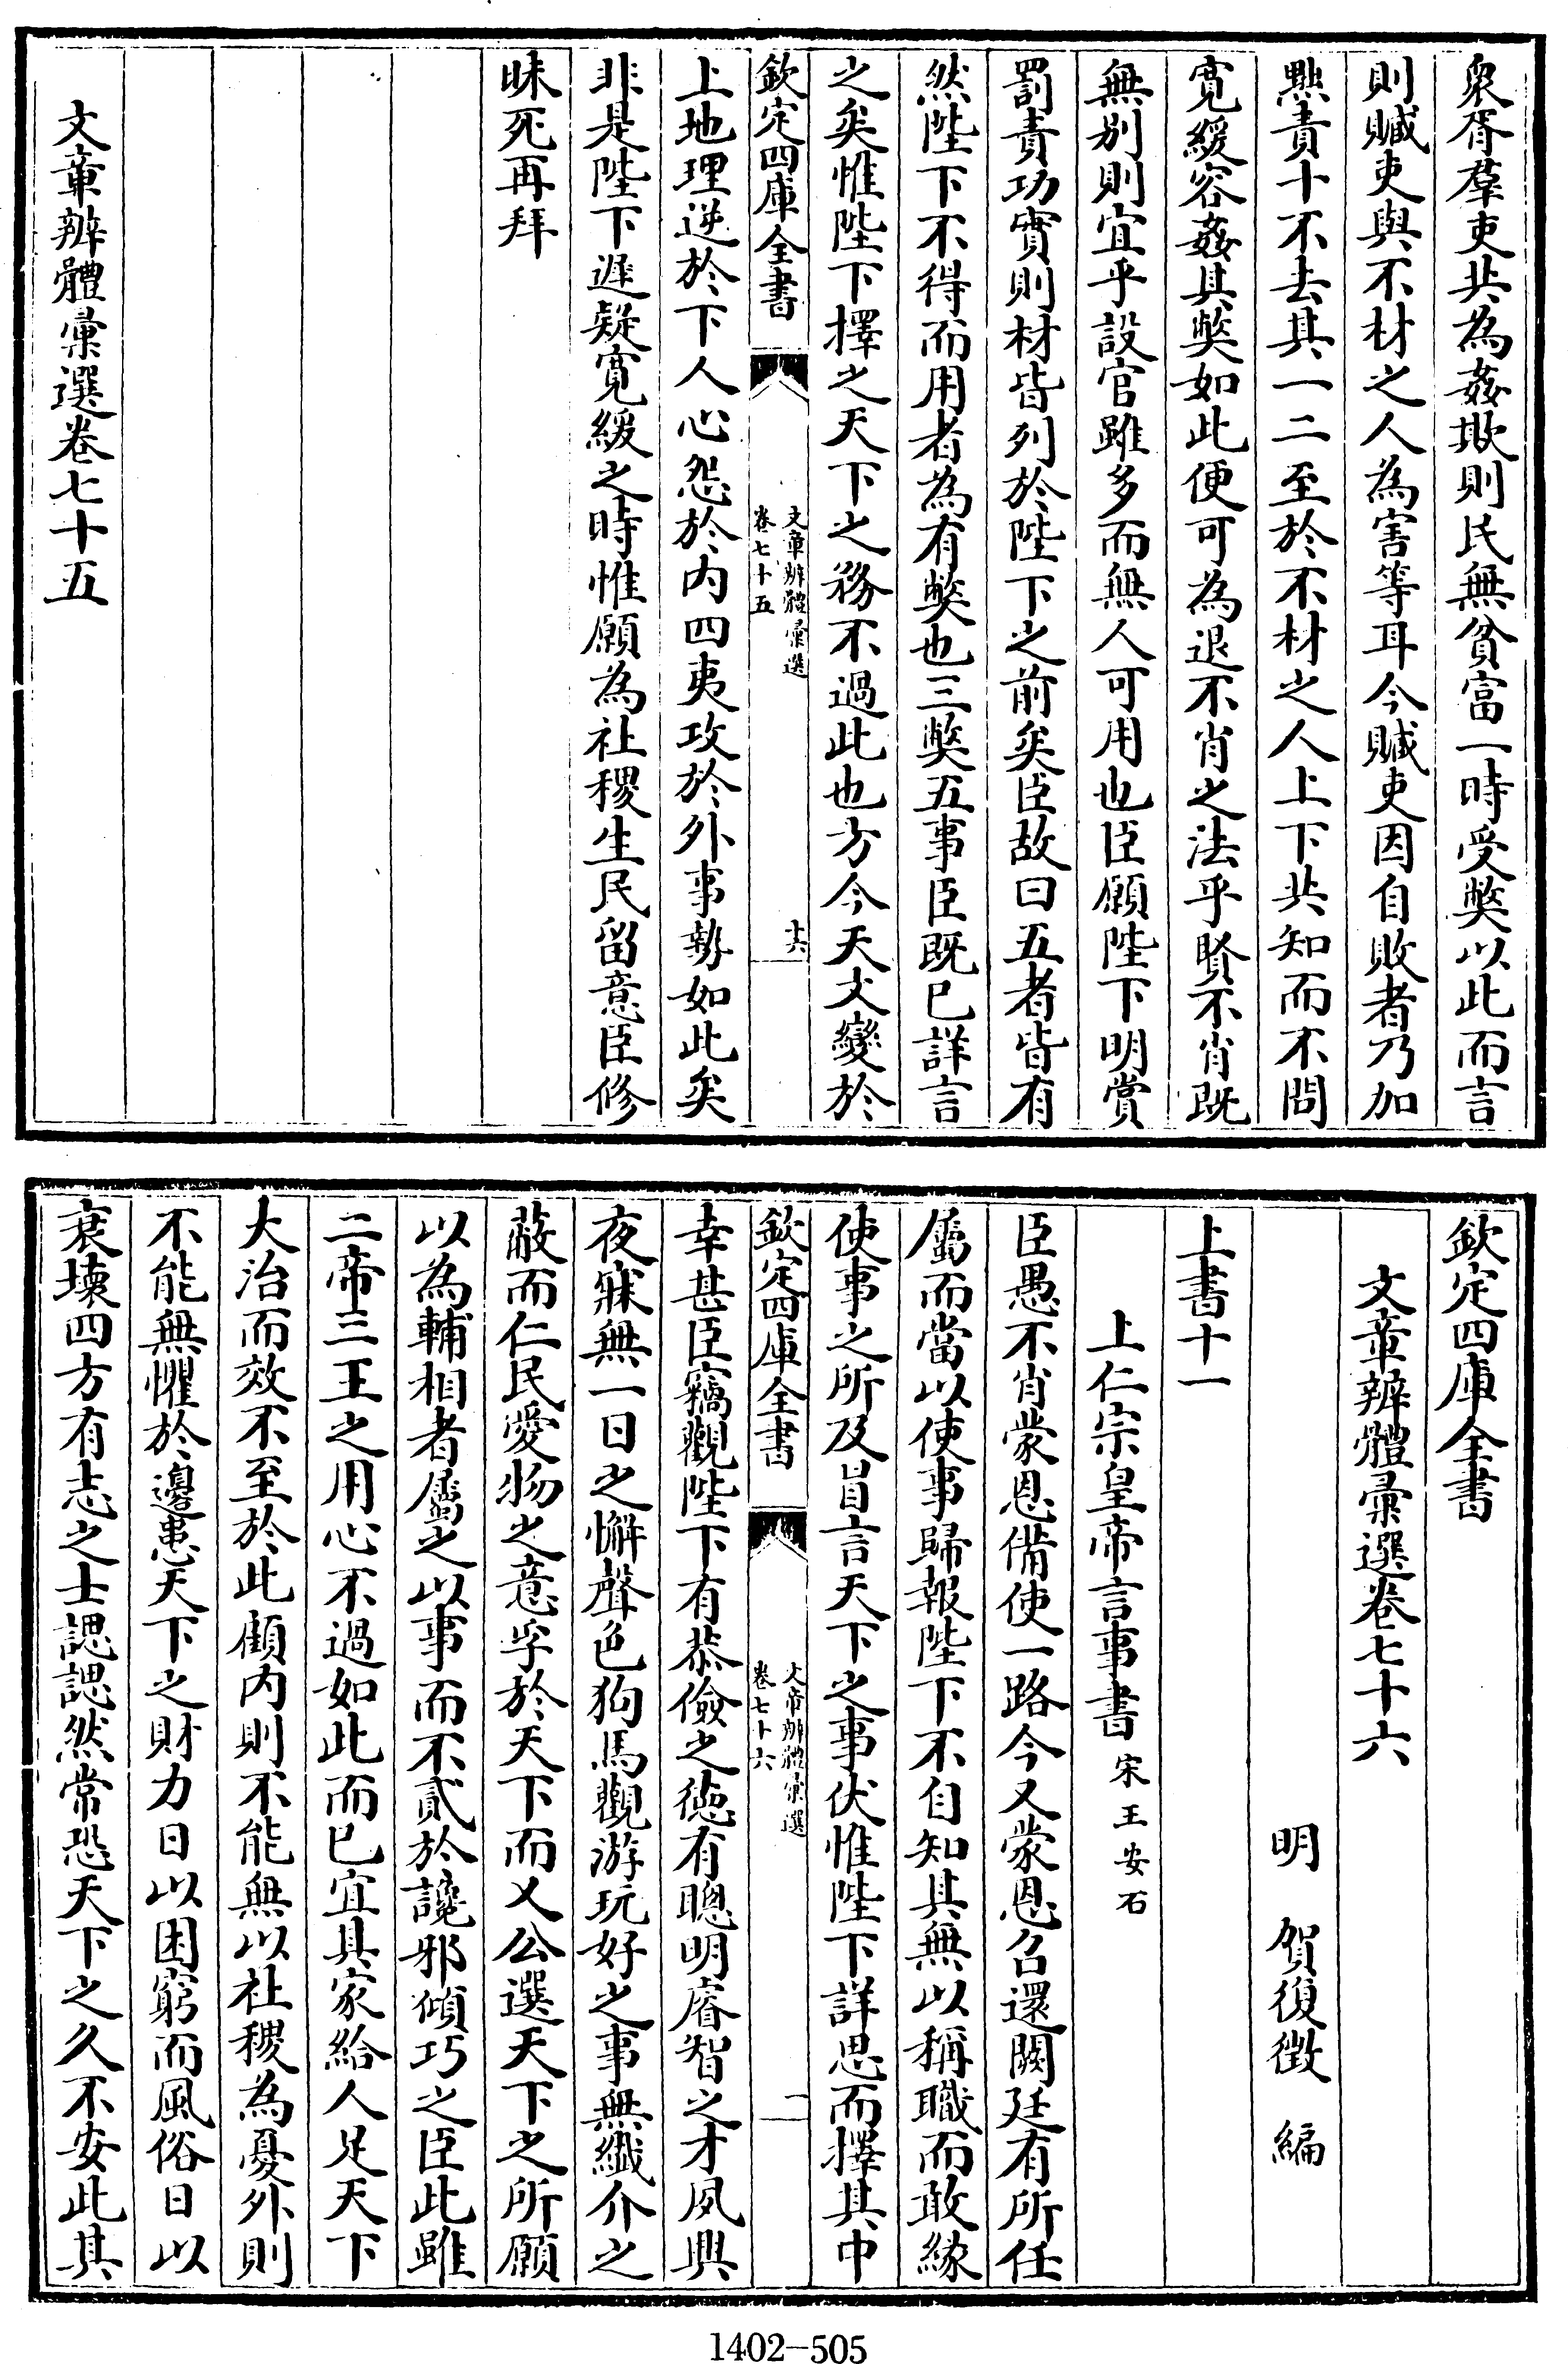 衆胥羣吏共為姦欺則民無貧富一時受獘以此而言
則贓吏與不材之人為害等耳今贓吏因自敗者乃加
黜責十不去其一二至於不材之人上下共知而不問
寛緩容姦其獘如此便可為退不肖之法乎賢不肖既
無别則宜乎設官雖多而無人可用也臣願陛下明賞
罰責功實則材皆列於陛下之前矣臣故曰五者皆有
然陛下不得而用者為有獘也三獘五事臣既已詳言
之矣惟陛下擇之天下之務不過此也方今天文變於
欽定四庫全書
文章辨體彙選
卷七十五
十六
上地理逆於下人心怨於内四夷攻於外事勢如此矣
非是陛下遲疑寛緩之時惟願為社稷生民留意臣修
昧死再拜
文章辨體彙選卷七十五
欽定四庫全書
文章辨體彙選卷七十六
明 賀復徴 編
上書十一
上仁宗皇帝言事書 宋王安石
臣愚不肖蒙恩備使一路今又蒙恩召還闕廷有所任
屬而當以使事歸報陛下不自知其無以稱職而敢緣
使事之所及冒言天下之事伏惟陛下詳思而擇其中
欽定四庫全書
文章辨體彙選
卷七十六
一
幸甚臣竊觀陛下有恭儉之徳有聰明睿智之才夙興
夜寐無一日之懈聲色狗馬觀游玩好之事無纖介之
蔽而仁民愛物之意孚於天下而又公選天下之所願
以為輔相者屬之以事而不貳於讒邪傾巧之臣此雖
二帝三王之用心不過如此而已宜其家給人足天下
大治而效不至於此顧内則不能無以社稷為憂外則
不能無懼於邊患天下之財力日以困窮而風俗日以
衰壊四方有志之士諰諰然常恐天下之久不安此其
1402-505